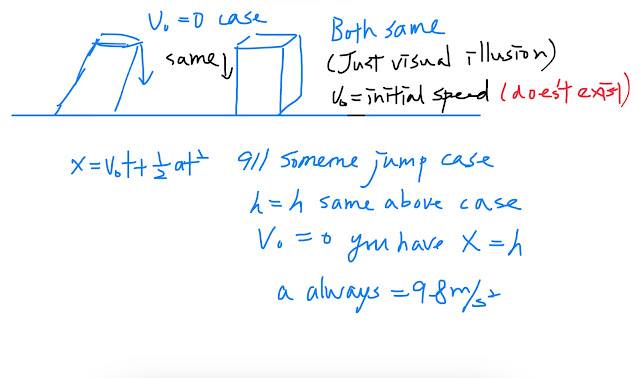 V₀ = 0 case
Both same
same
(Just visual illusion)
V₀ = initial speed (does't exist)
x = V₀t + ½ at²
911 someme jump case
h = h same above case
V₀ = 0 you have x = h
a always = 9.8 m/s²